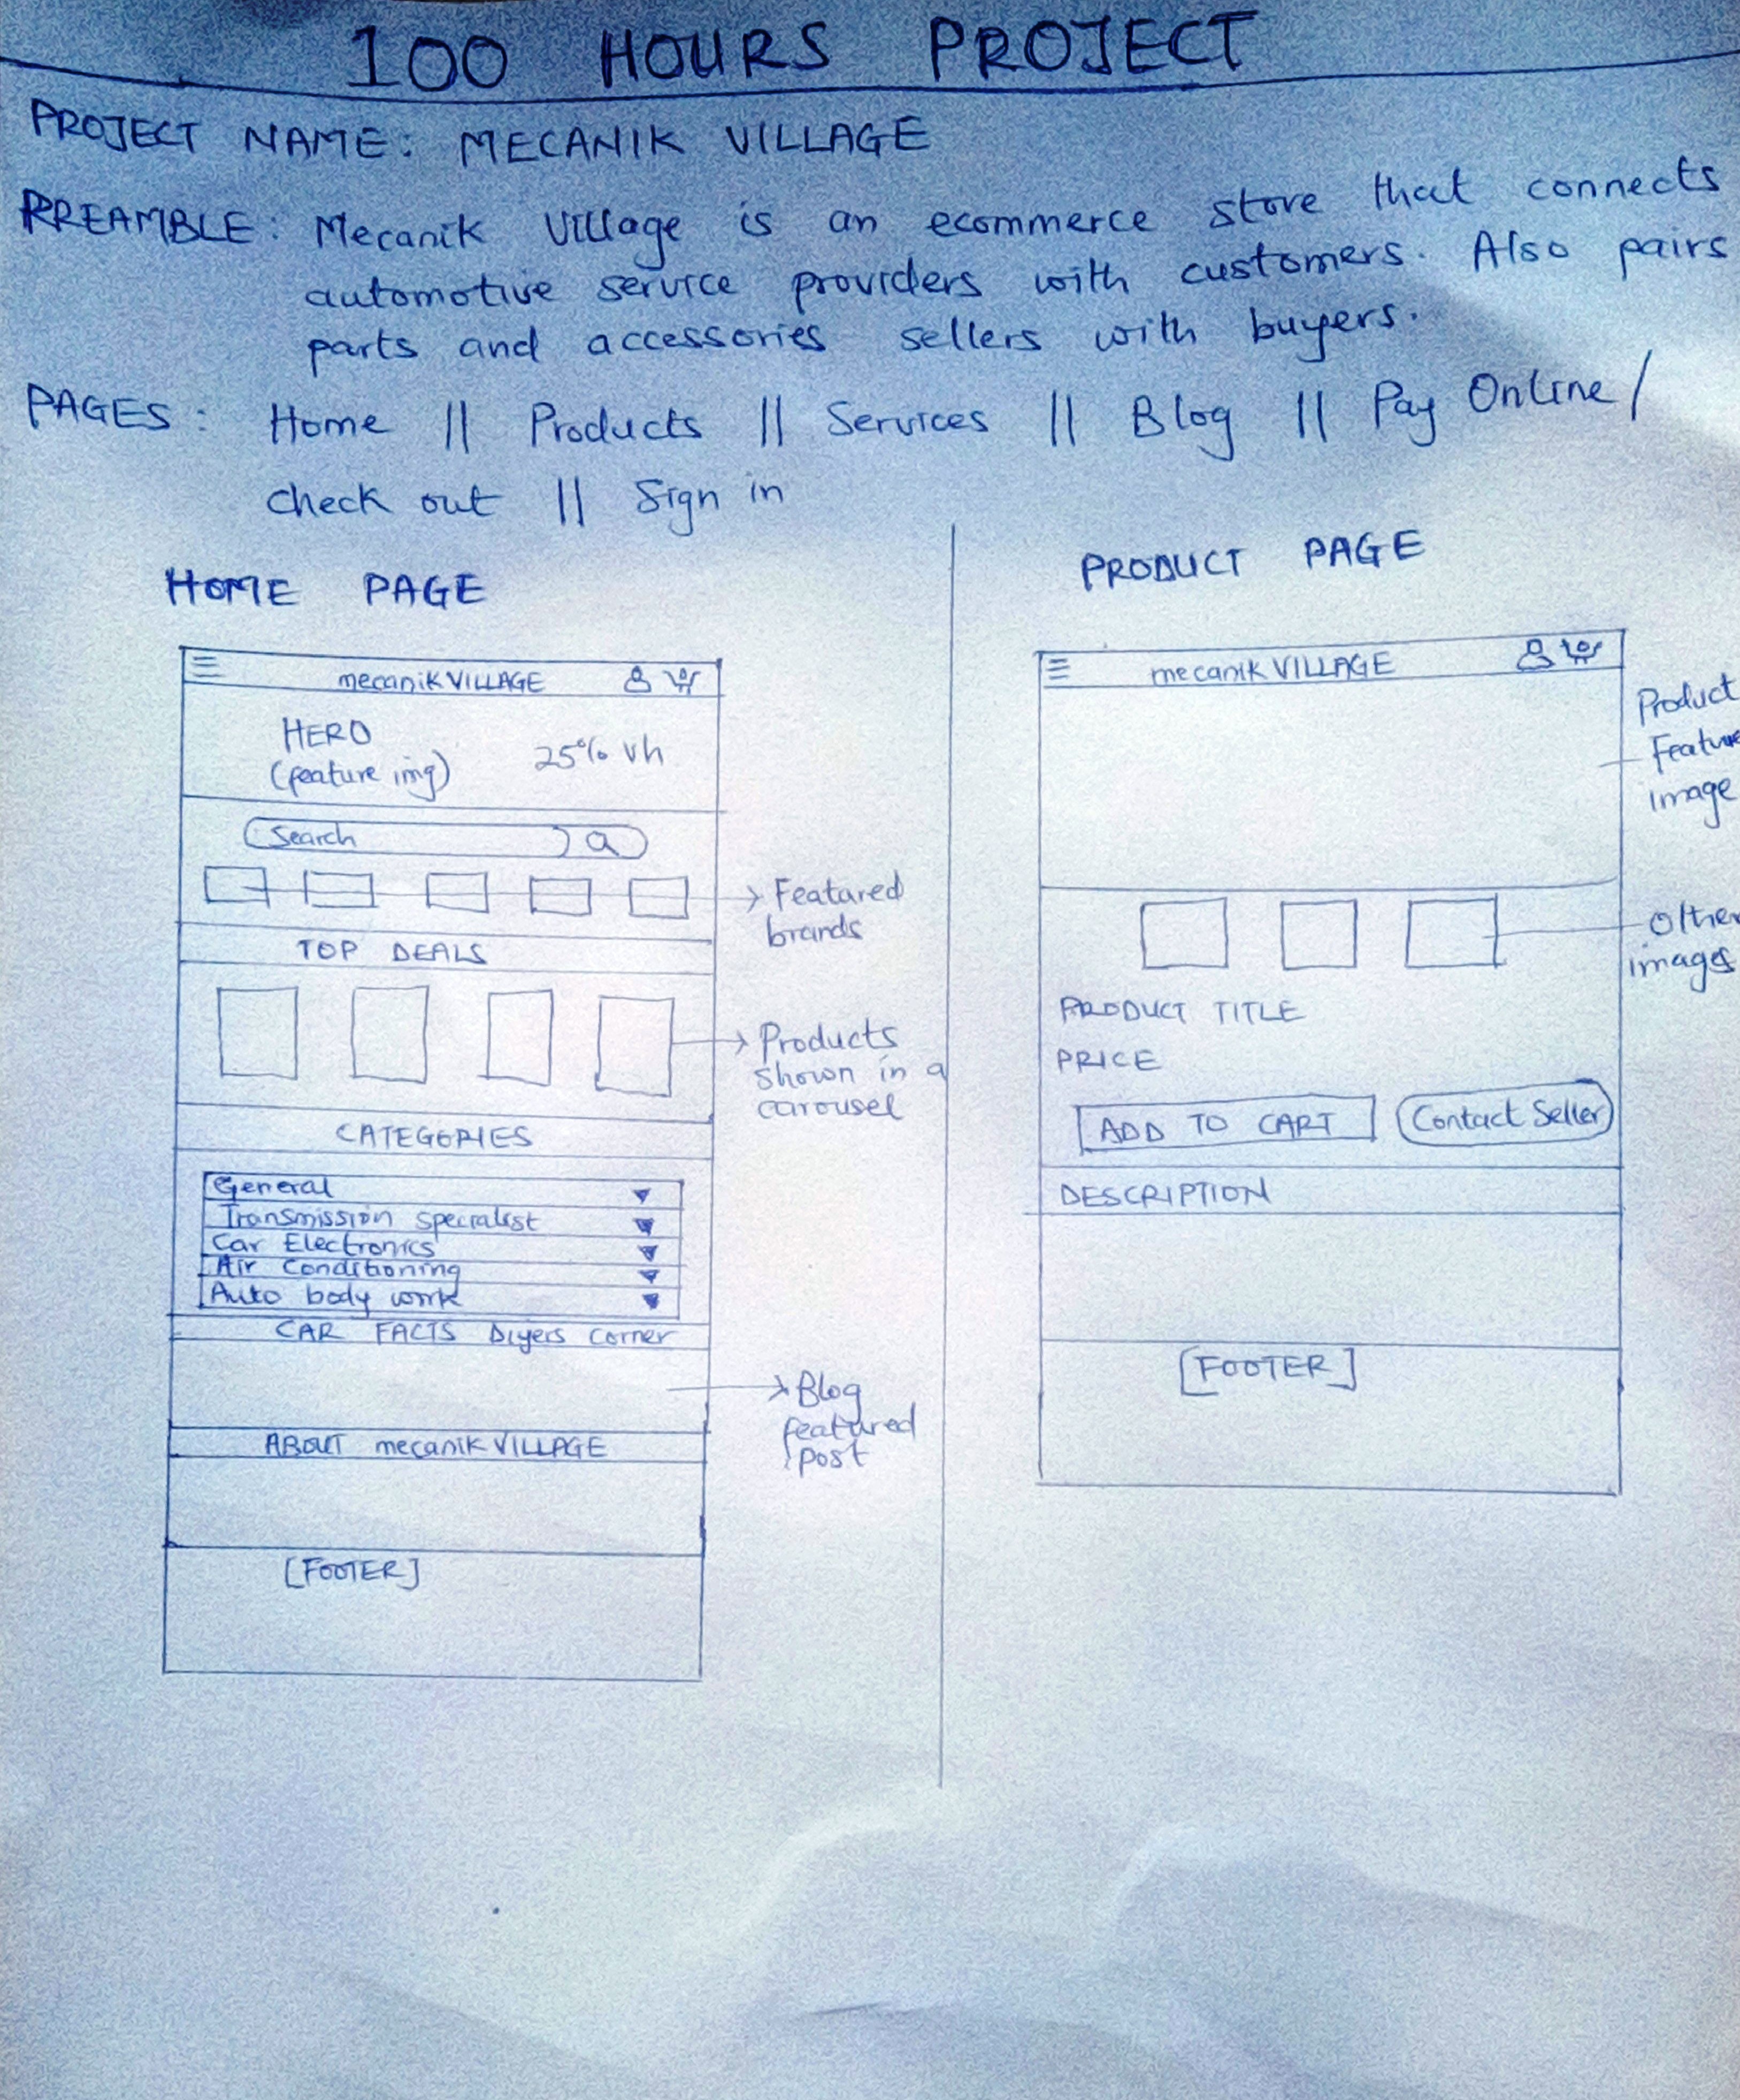 100 HOURS PROJECT
PROJECT NAME: MECANIK VILLAGE
PREAMBLE: Mecanik Village is an ecommerce store that connects
automotive service providers with customers. Also pairs
parts and accessories sellers with buyers.
PAGES: Home || Products || Services || Blog || Pay Online/
check out || Sign in
HOME PAGE
mecanik VILLAGE
HERO
(feature img)
25% vh
Search
Featured
brands
TOP DEALS
Products
shown in a
carousel
CATEGORIES
General
Transmission specialist
Car Electronics
Air Conditioning
Auto body work
CAR FACTS Diyers corner
Blog
featured
post
ABOUT mecanik VILLAGE
[FOOTER]
PRODUCT PAGE
mecanik VILLAGE
Product
Feature
image
Other
images
PRODUCT TITLE
PRICE
ADD TO CART
Contact Seller
DESCRIPTION
[FOOTER]